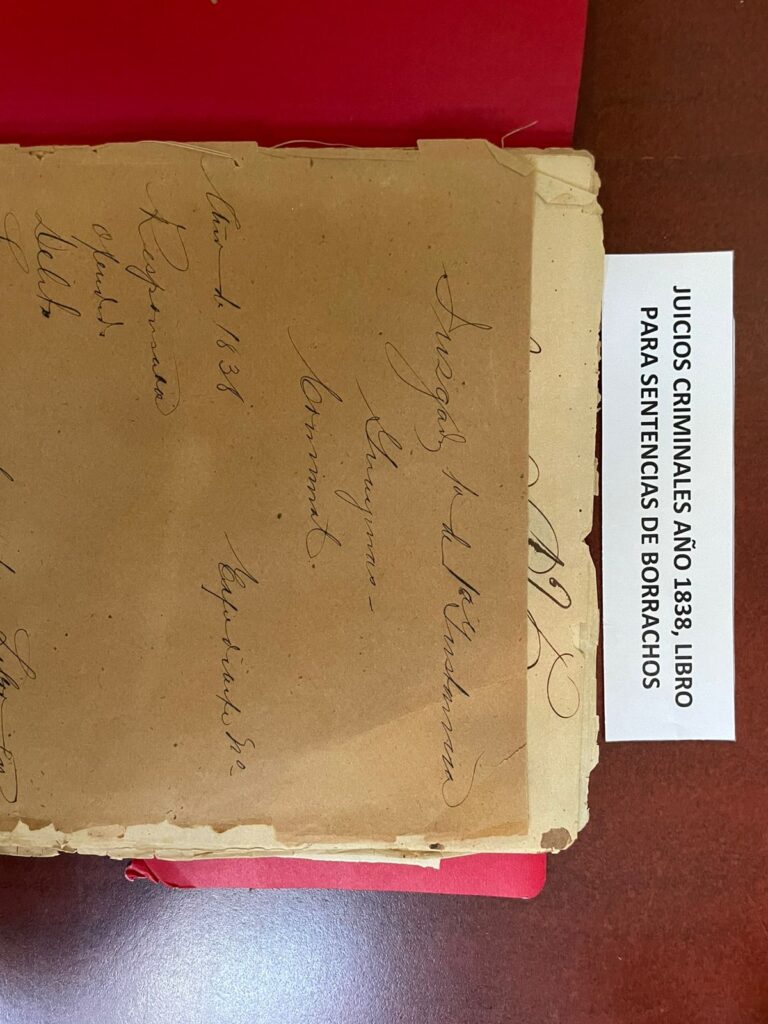 JUICIOS CRIMINALES AÑO 1838, LIBRO
PARA SENTENCIAS DE BORRACHOS
Nº 1
Juzgado 1º de 1ª Instancia
Guaymas-
Criminal.
Año de 1838 Expediente No.
Responsable
Ofendido
Delito